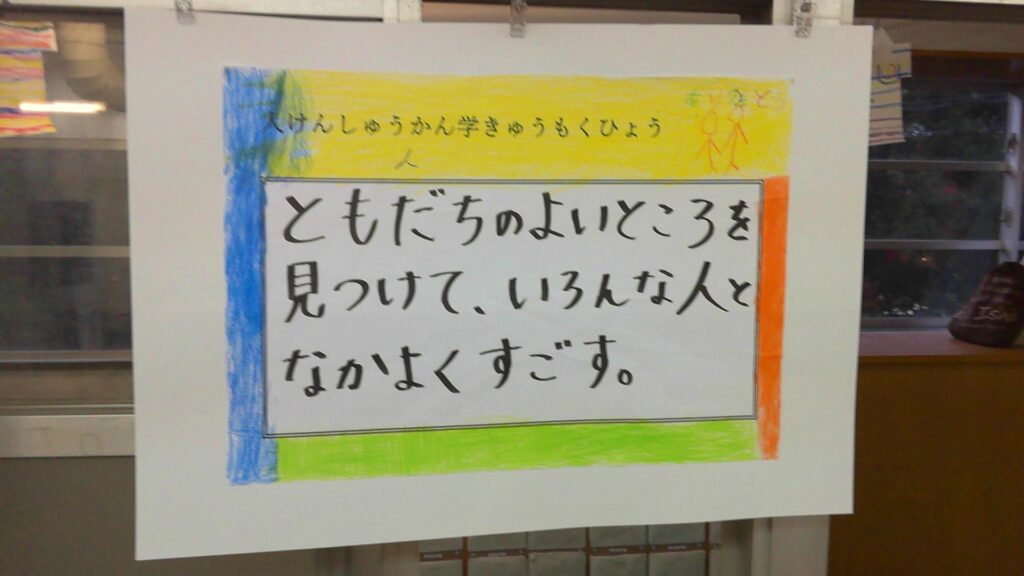 人けんしゅうかん学きゅうもくひょう
ありがとう
人
ともだちのよいところを
見つけて、いろんな人と
なかよくすごす。